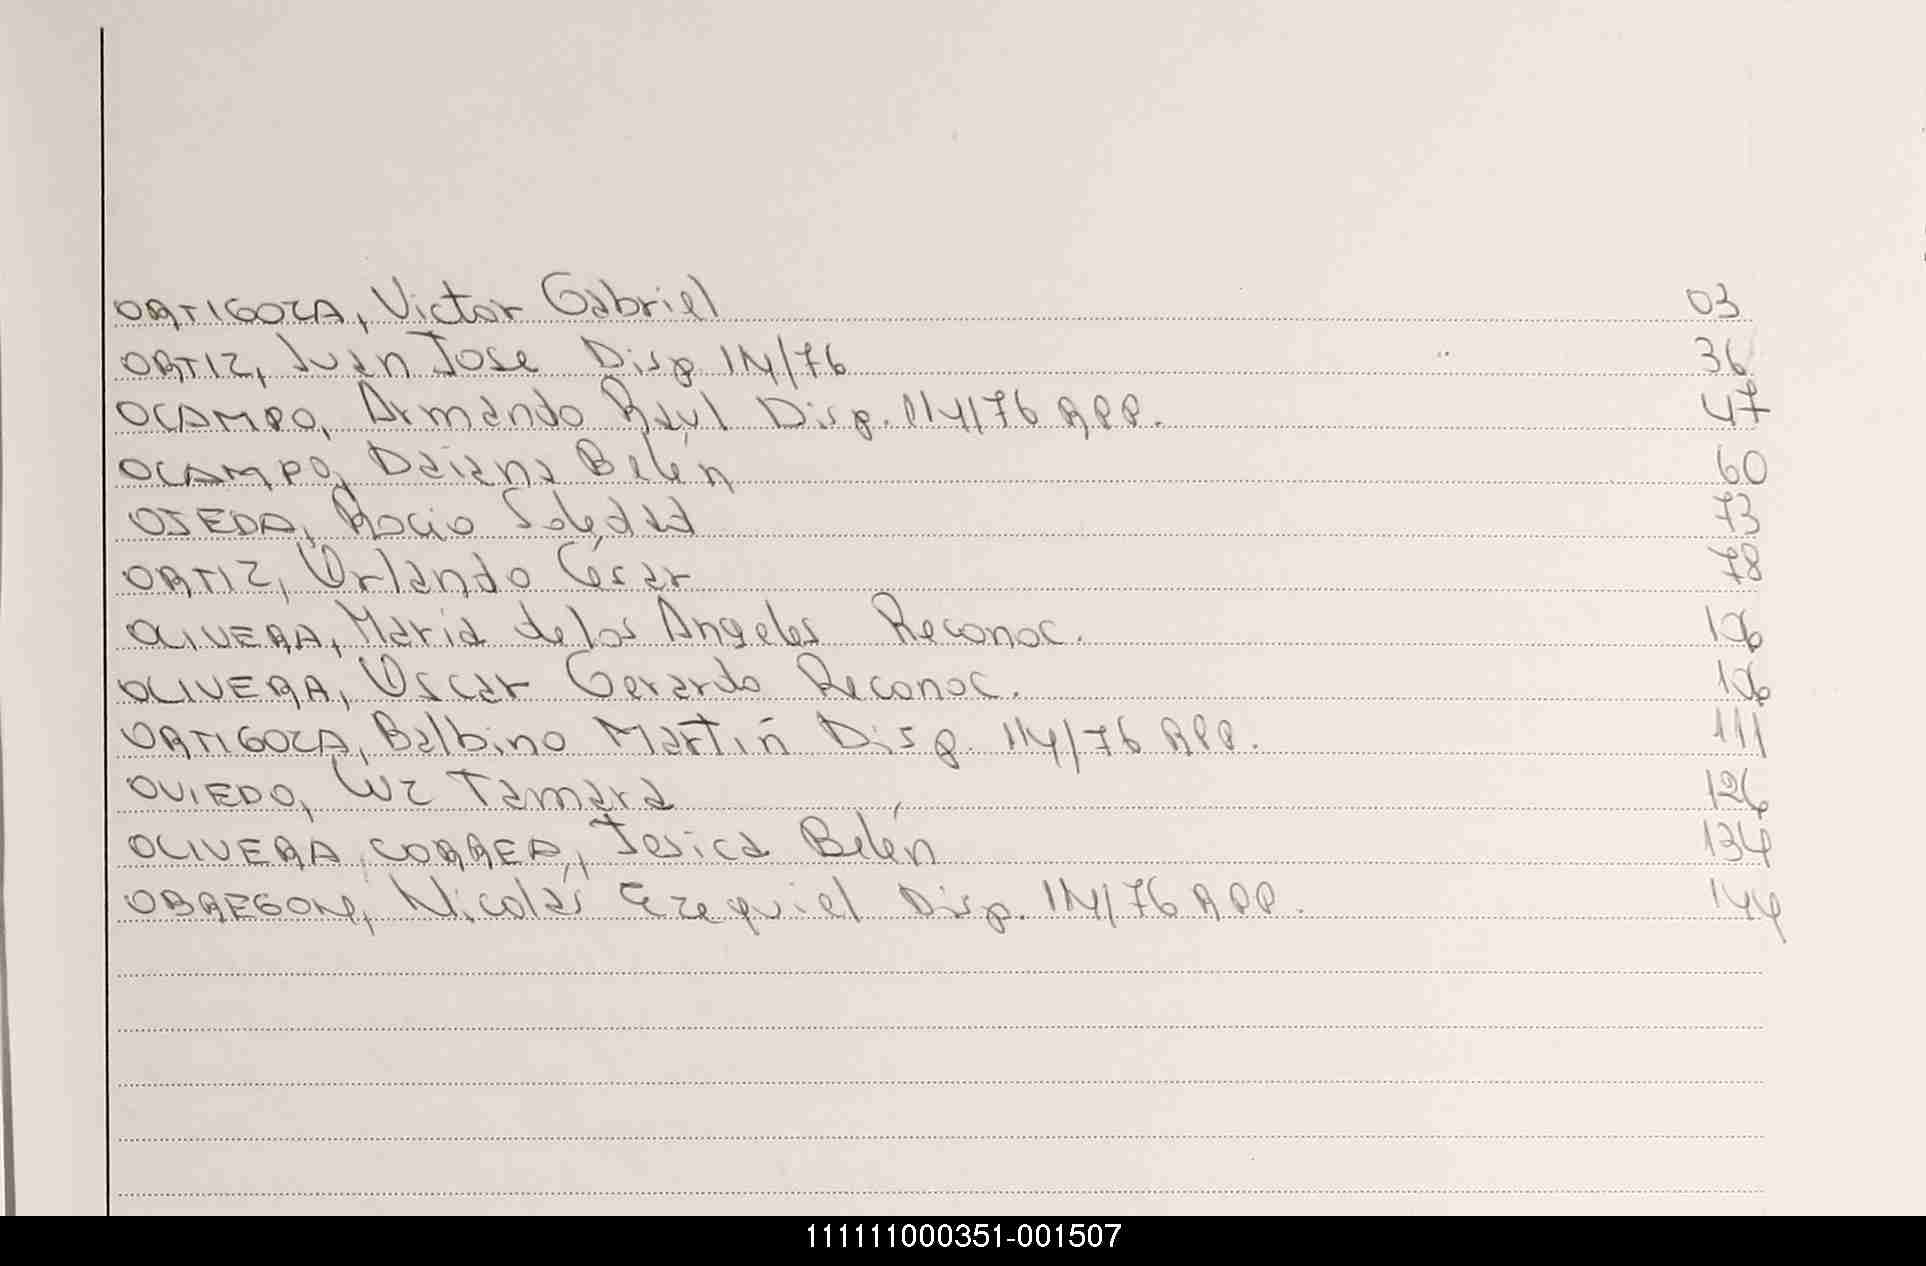 ORTIGOZA, Victor Gabriel 03
ORTIZ, Juan Jose Disp 114/76 36
OCAMPO, Armando Raul Disp. 114/76 RPP. 47
OCAMPO, Daiana Belén 60
OJEDA, Rocio Soledad 73
ORTIZ, Orlando César 78
OLIVERA, Maria de los Angeles Reconoc. 106
OLIVERA, Oscar Gerardo Reconoc. 106
ORTIGOZA, Balbino Martín Disp. 114/76 RPP. 111
OVIEDO, Luz Tamara 126
OLIVERA CORREA, Jesica Belén 134
OBREGON, Nicolás Ezequiel Disp. 114/76 RPP. 144
111111000351-001507